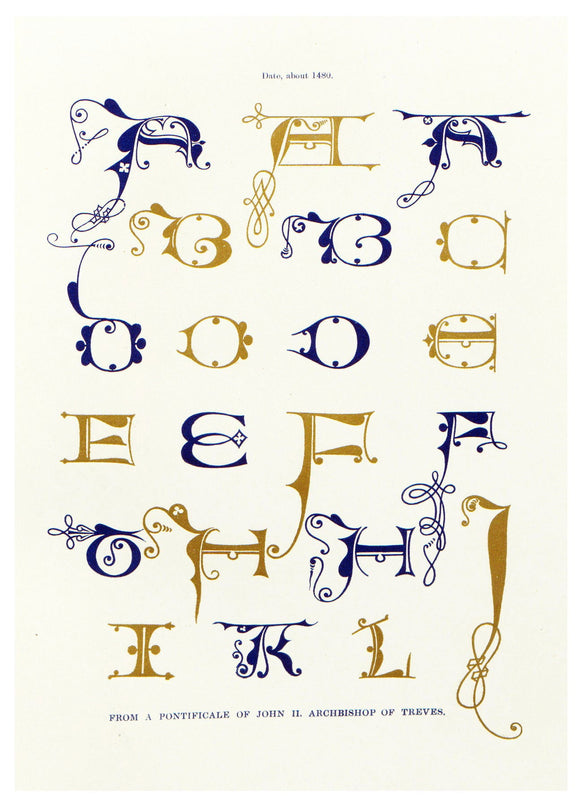 Date, about 1480.
A A A
B B
D D
E E F F
G H H I
I K L
FROM A PONTIFICALE OF JOHN II. ARCHBISHOP OF TREVES.